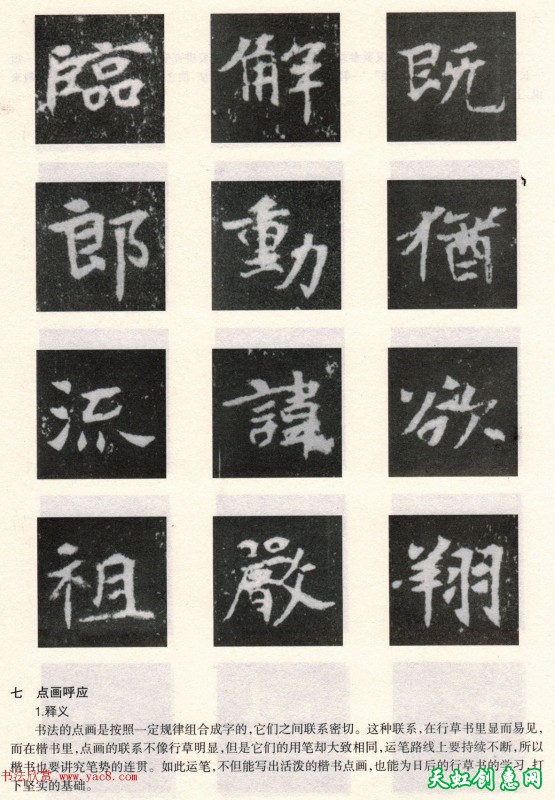 臨 觧 既
郎 動 猶
流 諱 欲
祖 嚴 翔
七 点画呼应
1.释义
书法的点画是按照一定规律组合成字的,它们之间联系密切。这种联系,在行草书里显而易见,
而在楷书里,点画的联系不像行草明显,但是它们的用笔却大致相同,运笔路线上要持续不断,所以
楷书也要讲究笔势的连贯。如此运笔,不但能写出活泼的楷书点画,也能为日后的行草书的学习,打
下坚实的基础。
书法欣赏 www.yac8.com
天虹创意网